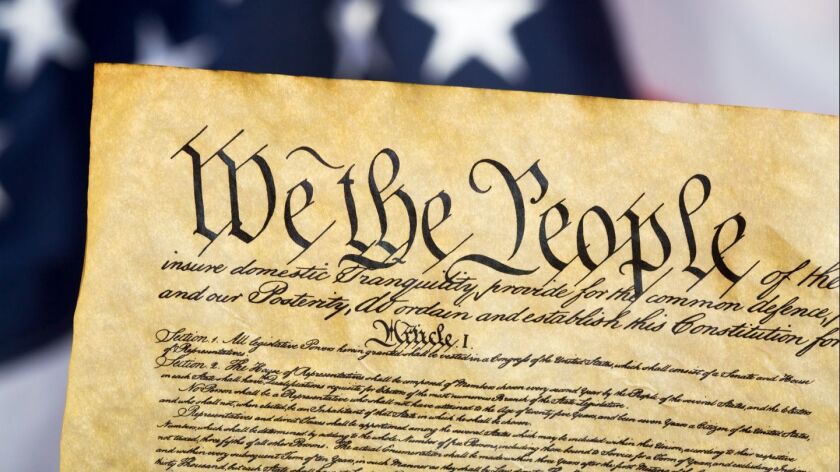 We the People of the
insure domestic Tranquility, provide for the common defence,
and our Posterity, do ordain and establish this Constitution for
Article I.
Section 1. All legislative Powers herein granted shall be vested in a Congress of the United States, which shall consist of a Senate and House
of Representatives.
Section 2. The House of Representatives shall be composed of Members chosen every second Year by the People of the several States, and the Electors
in each State shall have Qualifications requisite for Electors of the most numerous Branch of the State Legislature.
No Person shall be a Representative who shall not have attained to the Age of twenty five Years, and been seven Years a Citizen of the United States,
and who shall not, when elected, be an Inhabitant of that State in which he shall be chosen.
Representatives and direct Taxes shall be apportioned among the several States which may be included within this Union, according to their respective
Numbers, which shall be determined by adding to the whole Number of free Persons, including those bound to Service for a Term of Years, and excluding Indians
not taxed, three fifths of all other Persons. The actual Enumeration shall be made within three Years after the first
and within every subsequent Term of ten Years, in such Manner as they shall by Law
thirty Thousand, but each State shall